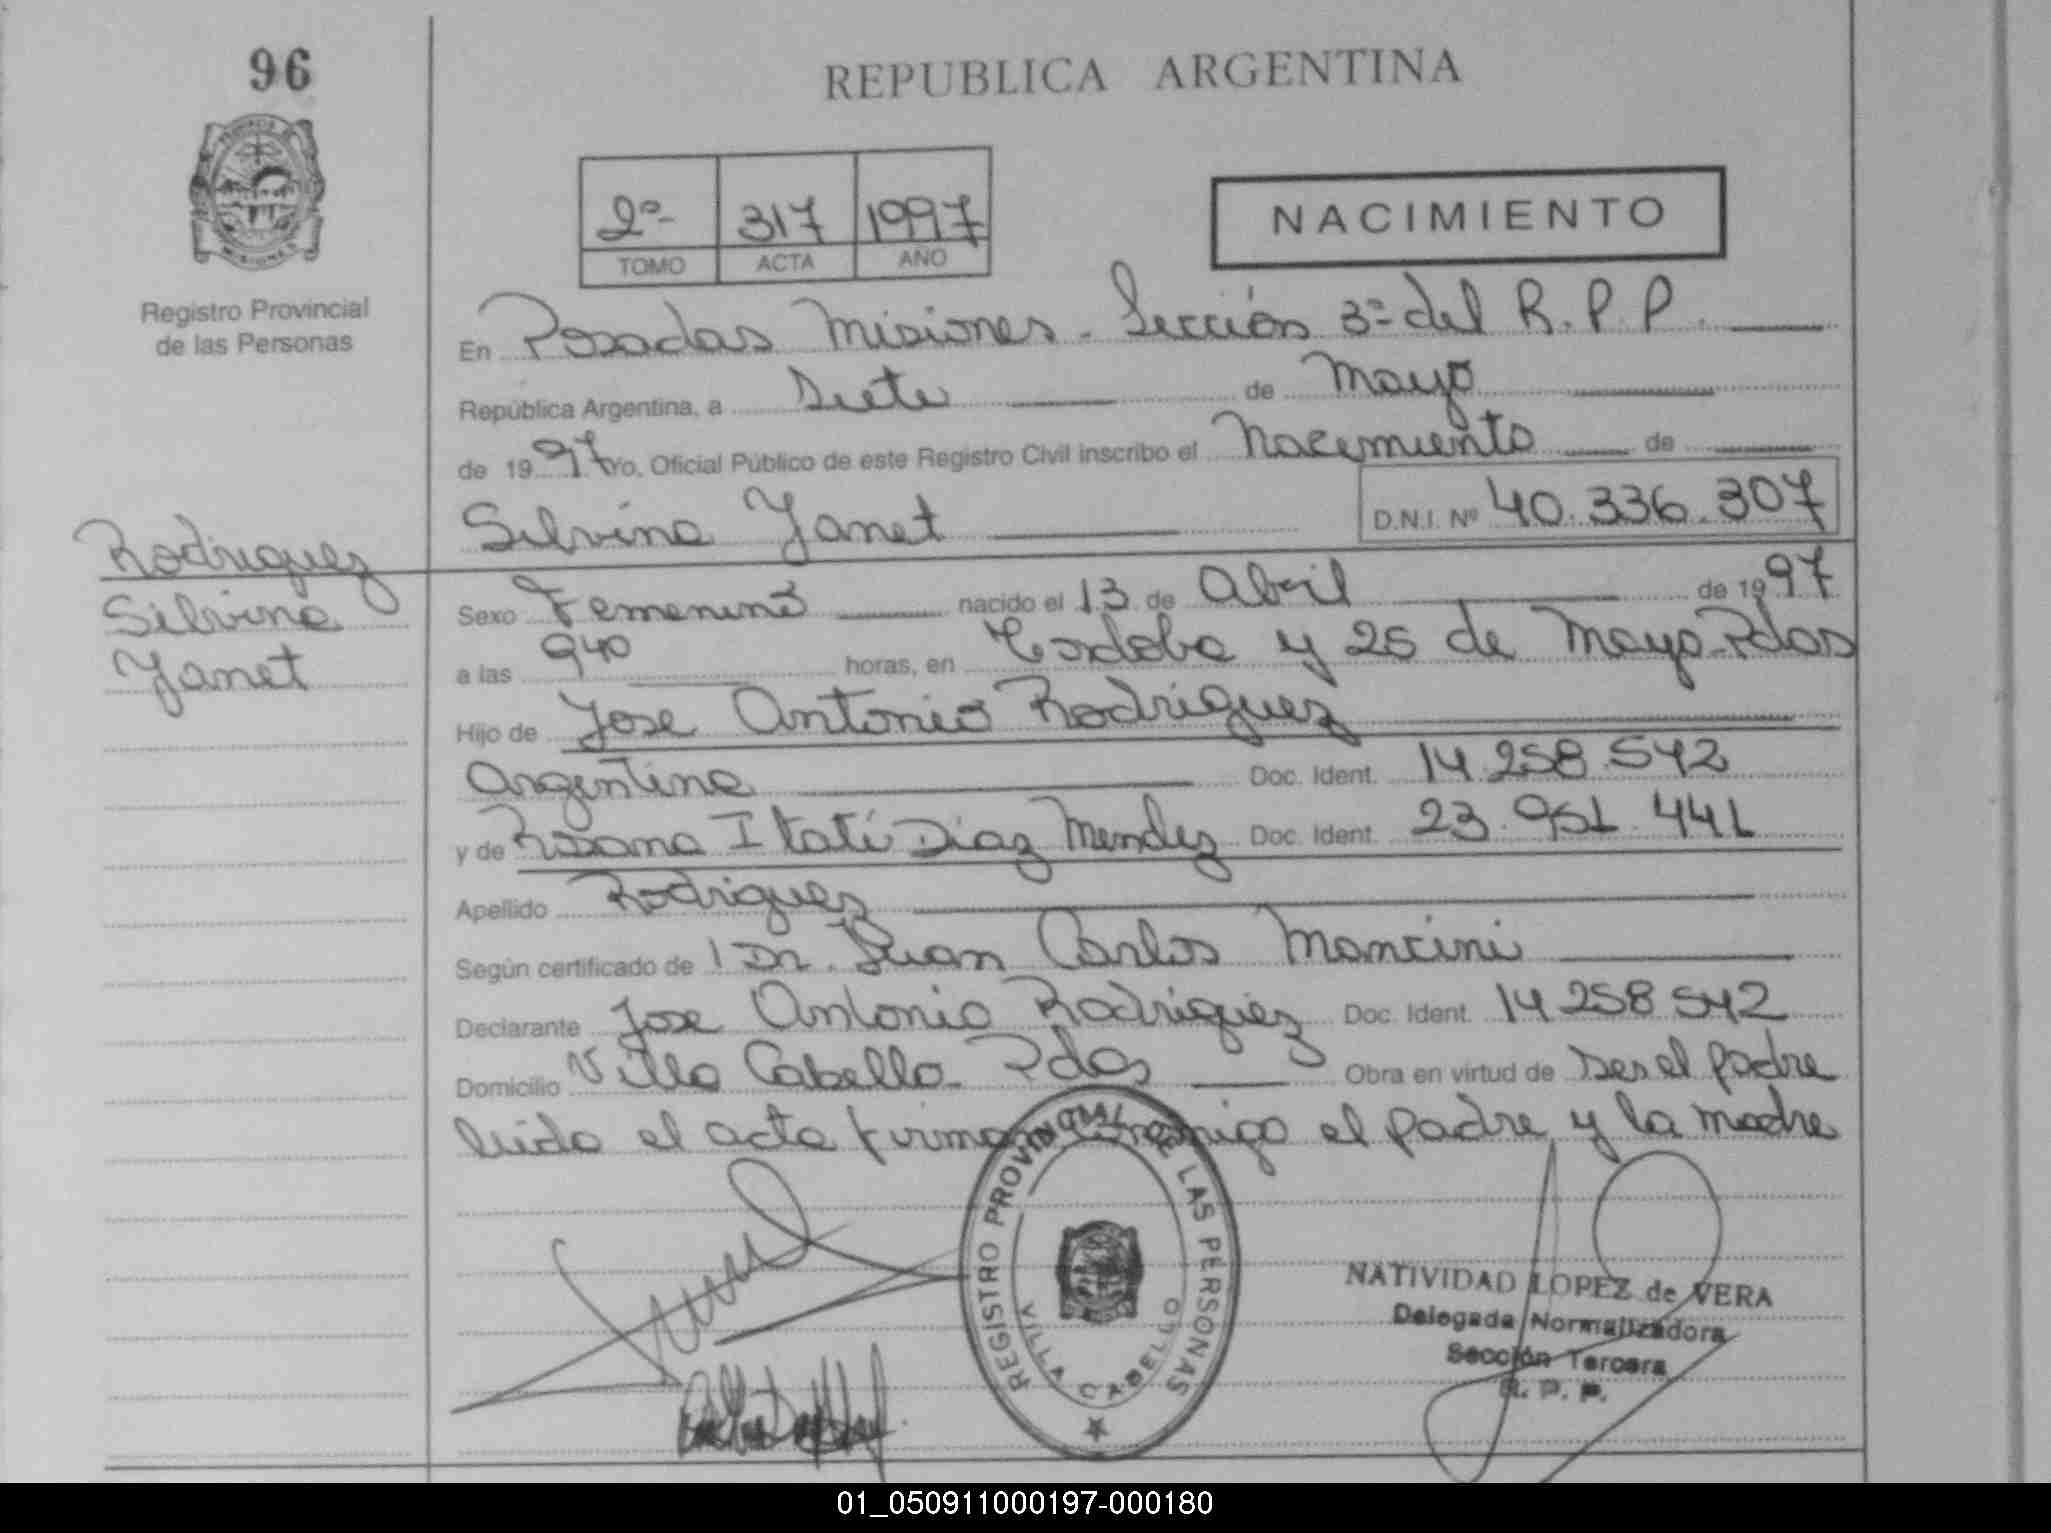 96
REPUBLICA ARGENTINA
PROVINCIA DE
MISIONES
Registro Provincial
de las Personas
2º 317 1997
TOMO ACTA AÑO
NACIMIENTO
En Posadas Misiones - Sección 3ª del R.P.P.
República Argentina, a Siete de Mayo
de 1997 Yo. Oficial Público de este Registro Civil inscribo el Nacimiento de
Silvina Yanet D.N.I. Nº 40.336.307
Rodriguez
Silvina
Yanet
Sexo Femenino nacido el 13 de Abril de 1997
a las 940 horas, en Cordoba y 25 de Mayo-Pdas
Hijo de Jose Antonio Rodriguez
Argentina Doc. Ident. 14.258.542
y de Rosana Itatí Diaz Mendez Doc. Ident. 23.951.441
Apellido Rodriguez
Según certificado de Dr. Juan Carlos Mancini
Declarante Jose Antonio Rodriguez Doc. Ident. 14.258.542
Domicilio Villa Cabello Pdas Obra en virtud de ser el padre
leida el acta firman conmigo el padre y la madre
REGISTRO PROVINCIAL DE LAS PERSONAS
VILLA CABELLO
NATIVIDAD LOPEZ de VERA
Delegada Normalizadora
Sección Tercera
R. P. P.
01_050911000197-000180